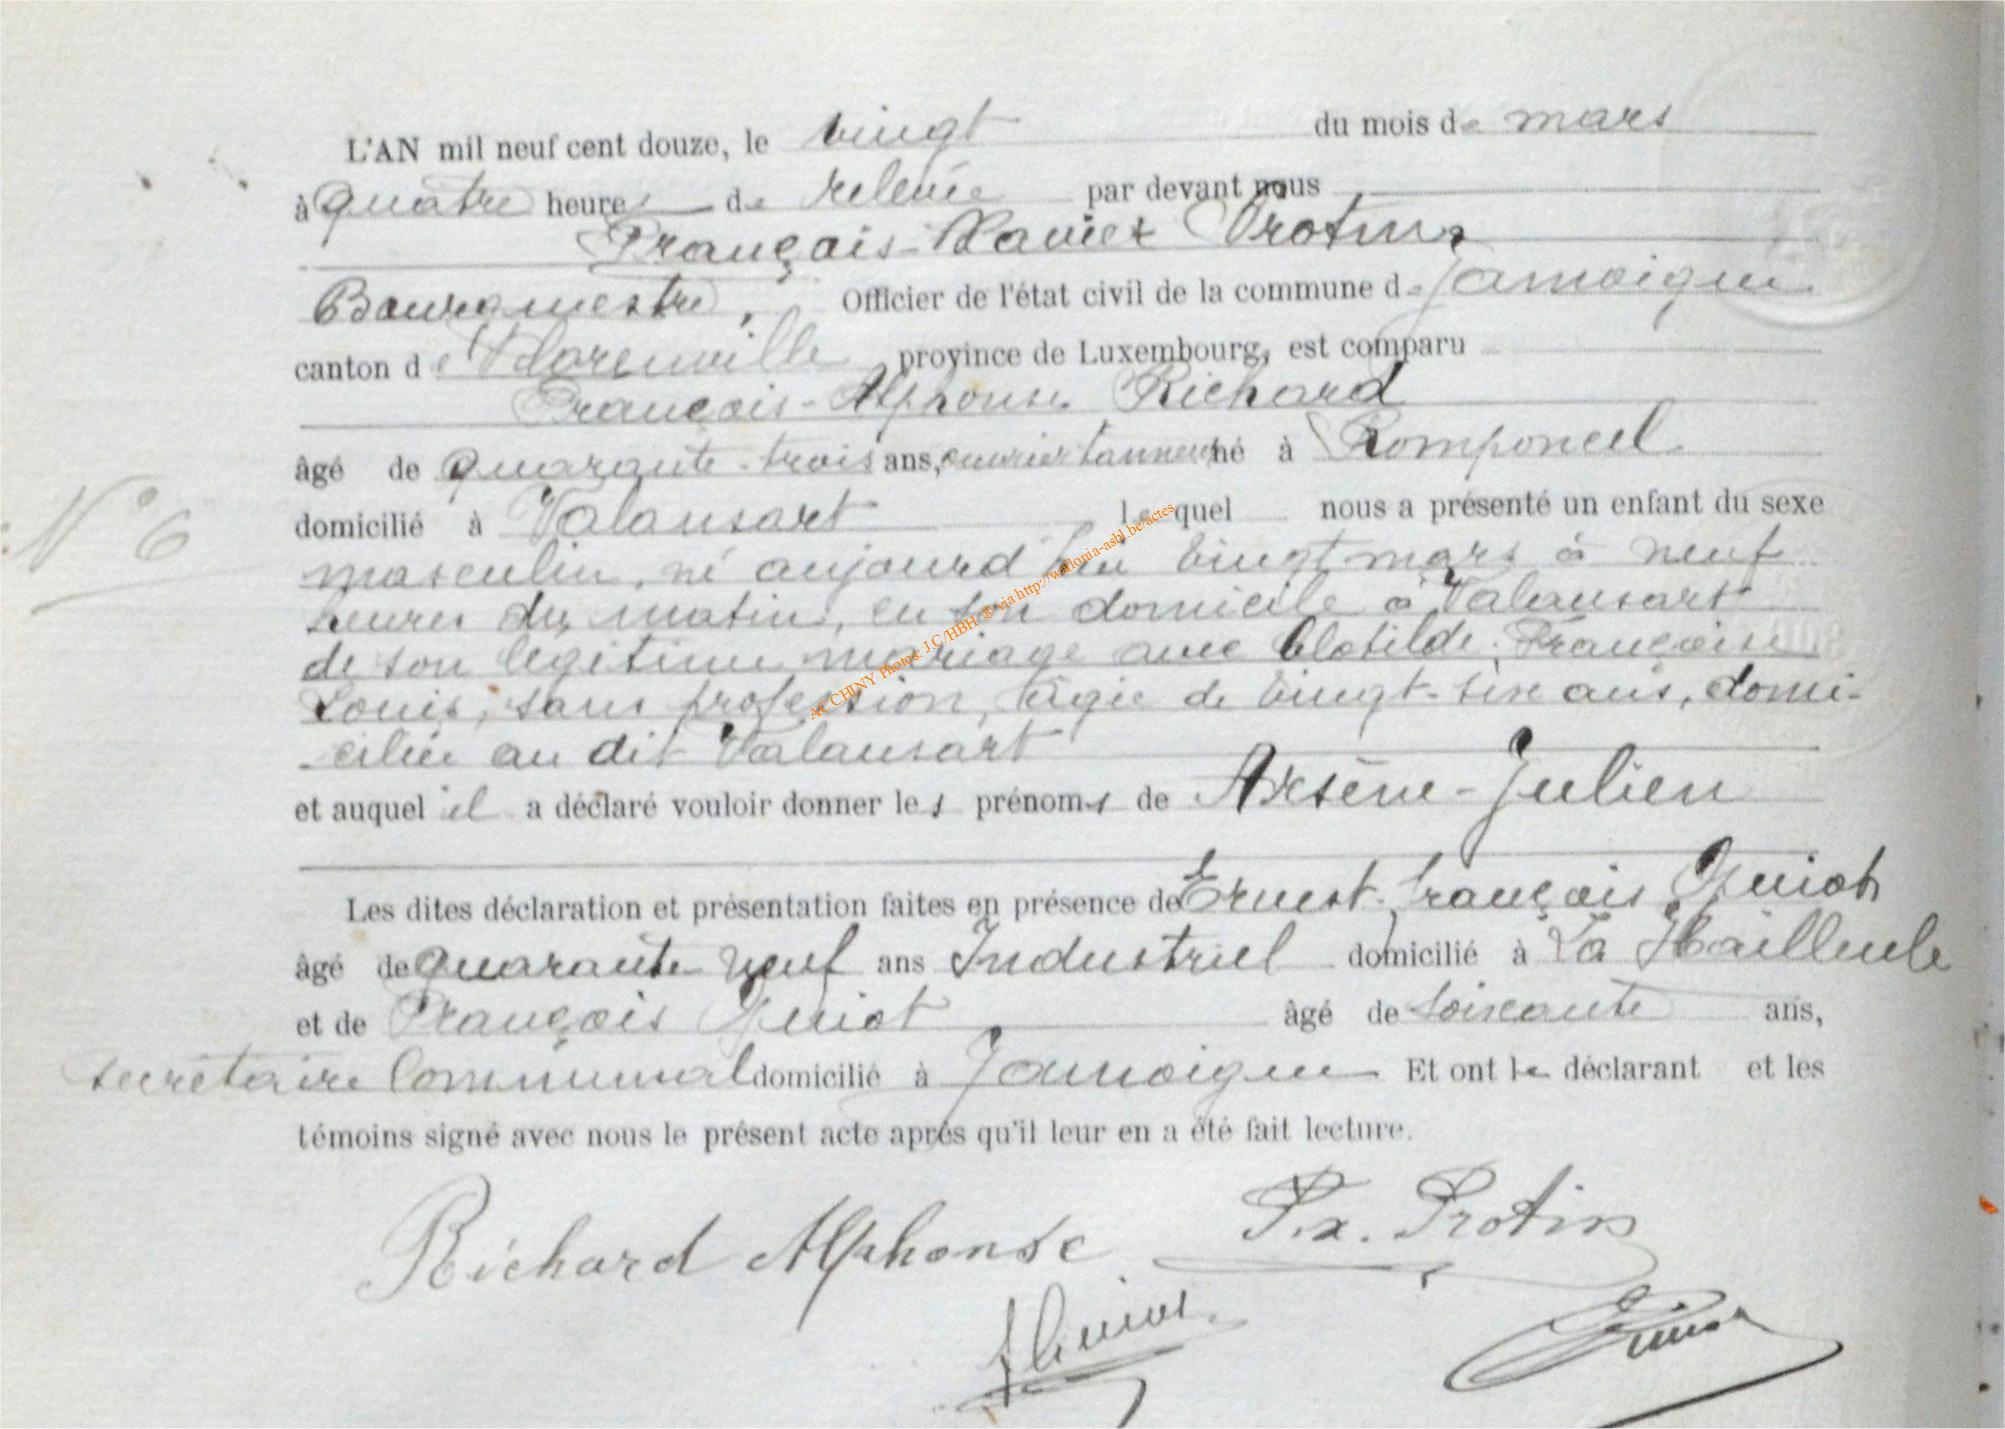 L'AN mil neuf cent douze, le vingt du mois de mars
à quatre heures de relevée par devant nous
François-Xavier Protin,
Bourgmestre, Officier de l'état civil de la commune de Jamoigne
canton de Florenville province de Luxembourg, est comparu
François-Alphonse Richard
âgé de quarante-trois ans, ouvrier tanneur né à Romponcel
domicilié à Valansart lequel nous a présenté un enfant du sexe
N° 6
masculin, né aujourd'hui vingt mars à neuf
heures du matin, en son domicile à Valansart
de son légitime mariage avec Clotilde, Françoise
Louis, sans profession, âgée de vingt-six ans, domi-
ciliée au dit Valansart
et auquel il a déclaré vouloir donner les prénoms de Arsène-Julien
Les dites déclaration et présentation faites en présence de Ernest-François Guiot
âgé de quarante neuf ans Industriel domicilié à La Hailleule
et de François Guiot âgé de soixante ans,
secrétaire communal domicilié à Jamoigne Et ont le déclarant et les
témoins signé avec nous le présent acte après qu'il leur en a été fait lecture.
Richard Alphonse F.x. Protin
f Guiot
EGuiot
AC CHINY Photos: J.C/HBH © via http://wallonia-asbl.be/actes